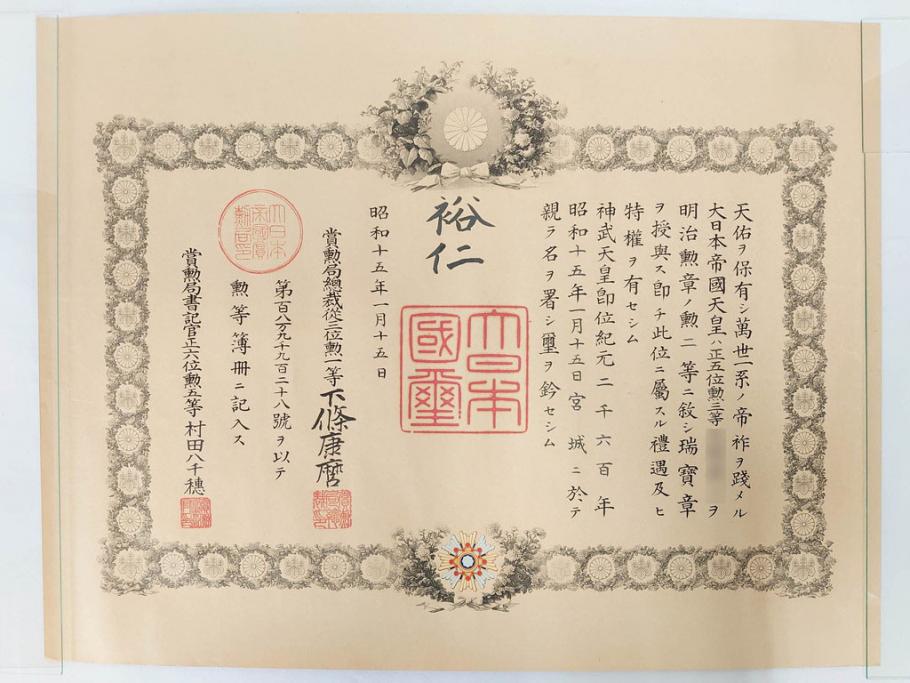 天佑ヲ保有シ萬世一系ノ帝祚ヲ踐メル
大日本帝國天皇ハ正五位勲三等ヲ
明治勲章ノ勲二等ニ敍シ瑞寶章
ヲ授與ス卽チ此位ニ屬スル禮遇及ヒ
特權ヲ有セシム
神武天皇卽位紀元二千六百年
昭和十五年一月十五日宮城ニ於テ
親ラ名ヲ署シ璽ヲ鈐セシム
裕仁
大日本
國璽
昭和十五年一月十五日
賞勲局總裁從三位勲一等下條康麿
第百八万九千九百二十八號ヲ以テ
勲等簿冊ニ記入ス
大日本
帝國賞
勲局印
賞勲局書記官正六位勲五等村田八千穗